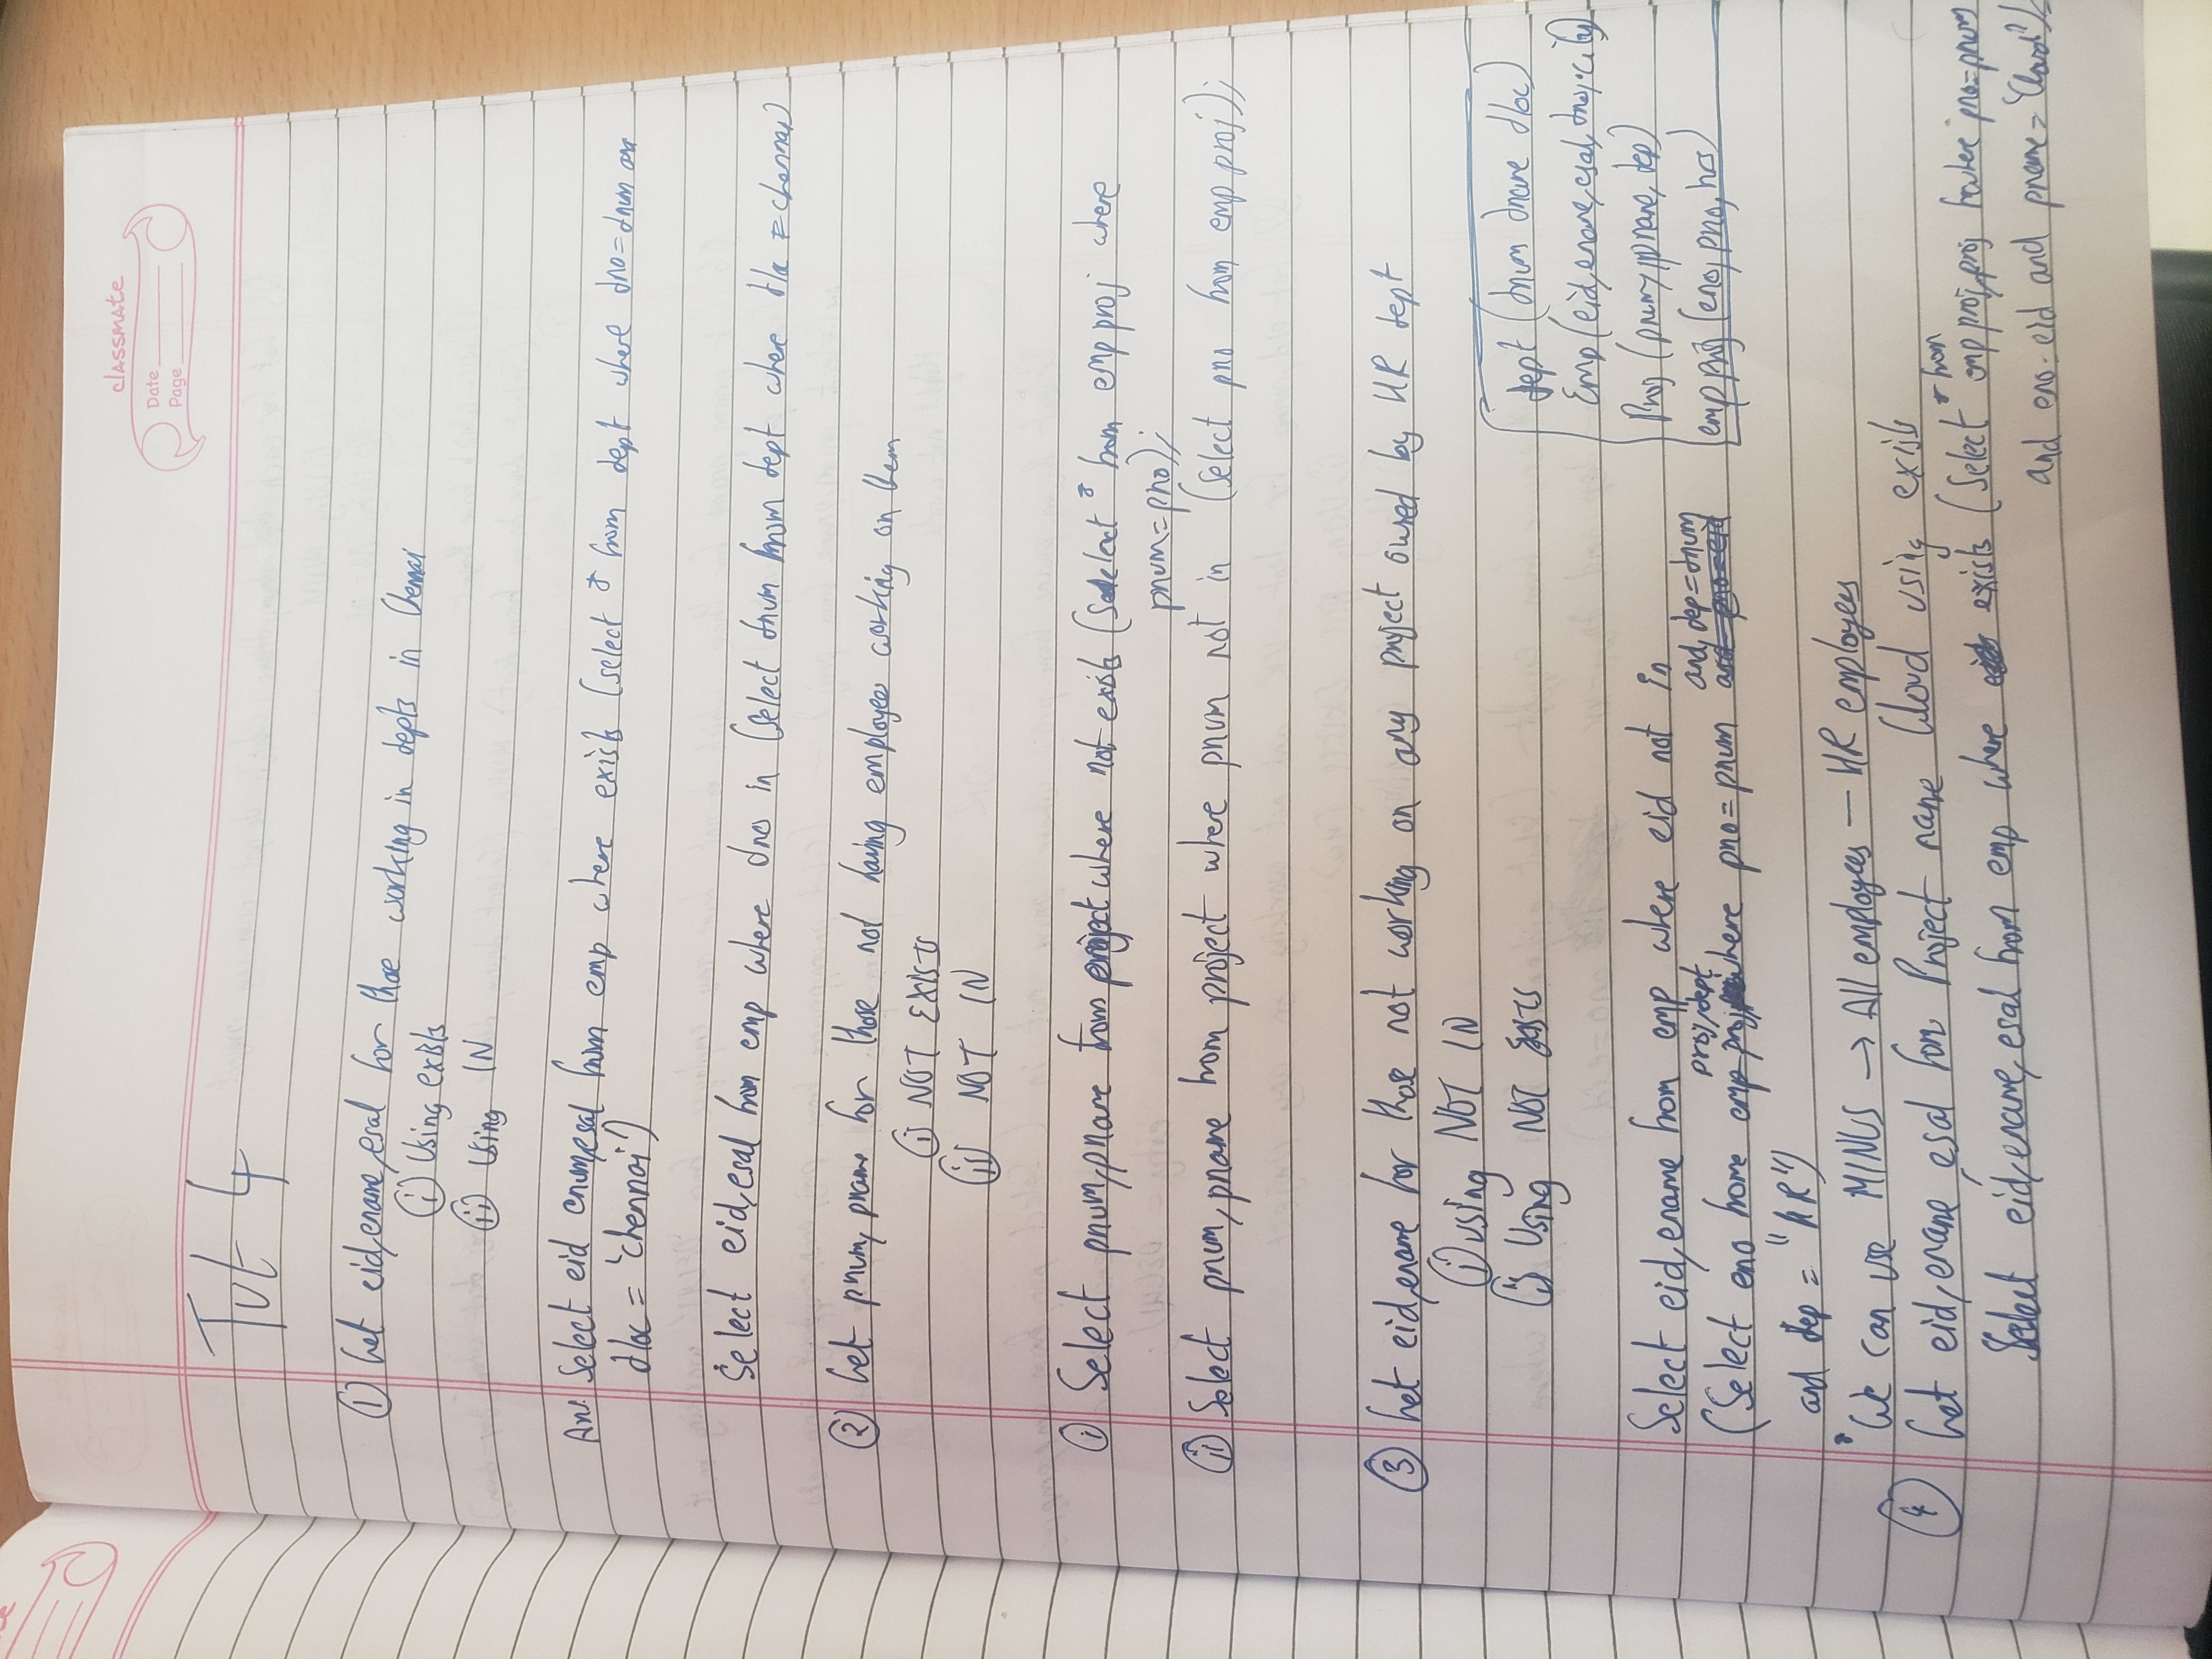 classmate
Date
Page
Tut 4
① Get eid, ename, esal for those working in depts in Chennai
i) Using exists
ii) Using IN
Ans: Select eid enum, esal from emp where exists (select * from dept where dno = dnum and
dloc = 'chennai')
Select eid, esal from emp where dno in (Select dnum from dept where dloc = chennai)
② Get pnum, pname for those not having employees working on them
i) NOT EXISTS
ii) NOT IN
i) Select pnum, pname from project where not exists (Select * from emp proj where
pnum = pno);
ii) Select pnum, pname from project where pnum not in (Select pno from emp proj);
③ Get eid, ename for those not working on any project owned by HR dept
i) using NOT IN
ii) Using NOT EXISTS
dept (dnum dname dloc)
Emp (eid, ename, esal, dno, city)
Proj (pnum, pname, dep)
emp proj (eno, pno, hrs)
Select eid, ename from emp where eid not in
proj, dept and, dep = dnum
(Select eno home emp proj, where pno = pnum and pno = eid
and dep = "HR")
* We can use MINUS → All employees — HR employees
④ Get eid, ename, esal for Project name Cloud using exists
Select eid, ename, esal from emp where exists (Select * from emp proj, proj where pno = pnum
and eno = eid and pname = 'Cloud');